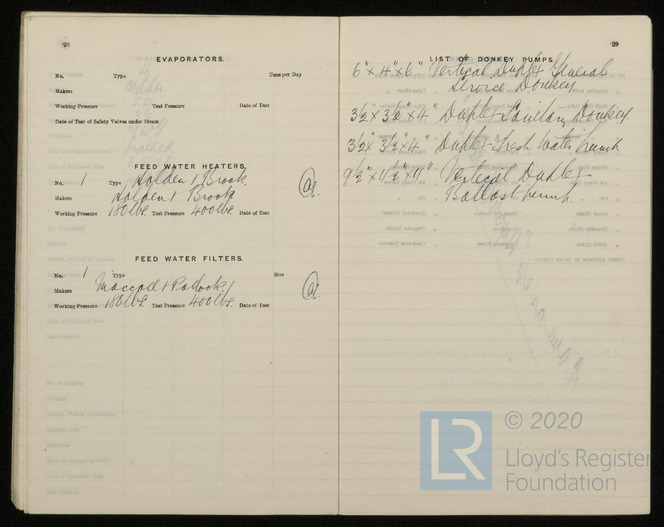 28
EVAPORATORS.
No. Type Tons per Day
Makers
Working Pressure Test Pressure Date of Test
Date of Test of Safety Valves under Steam
FEED WATER HEATERS.
No. 1 Type Holden & Brook.
Makers Holden & Brook
Working Pressure 180 lbs. Test Pressure 400 lbs. Date of Test
FEED WATER FILTERS.
No. 1 Type Size
Makers Maccoll & Pollock
Working Pressure 180 lbs. Test Pressure 400 lbs. Date of Test
29
LIST OF DONKEY PUMPS.
6" x 4" x 6" Vertical Duplex General
Service Donkey
3½ x 3½" x 4" Duplex Sanitary Donkey
3½" x 3½" x 4" Duplex Fresh Water Pump
Vertical Duplex
Ballast Pump
LR © 2020
Lloyd's Register
Foundation